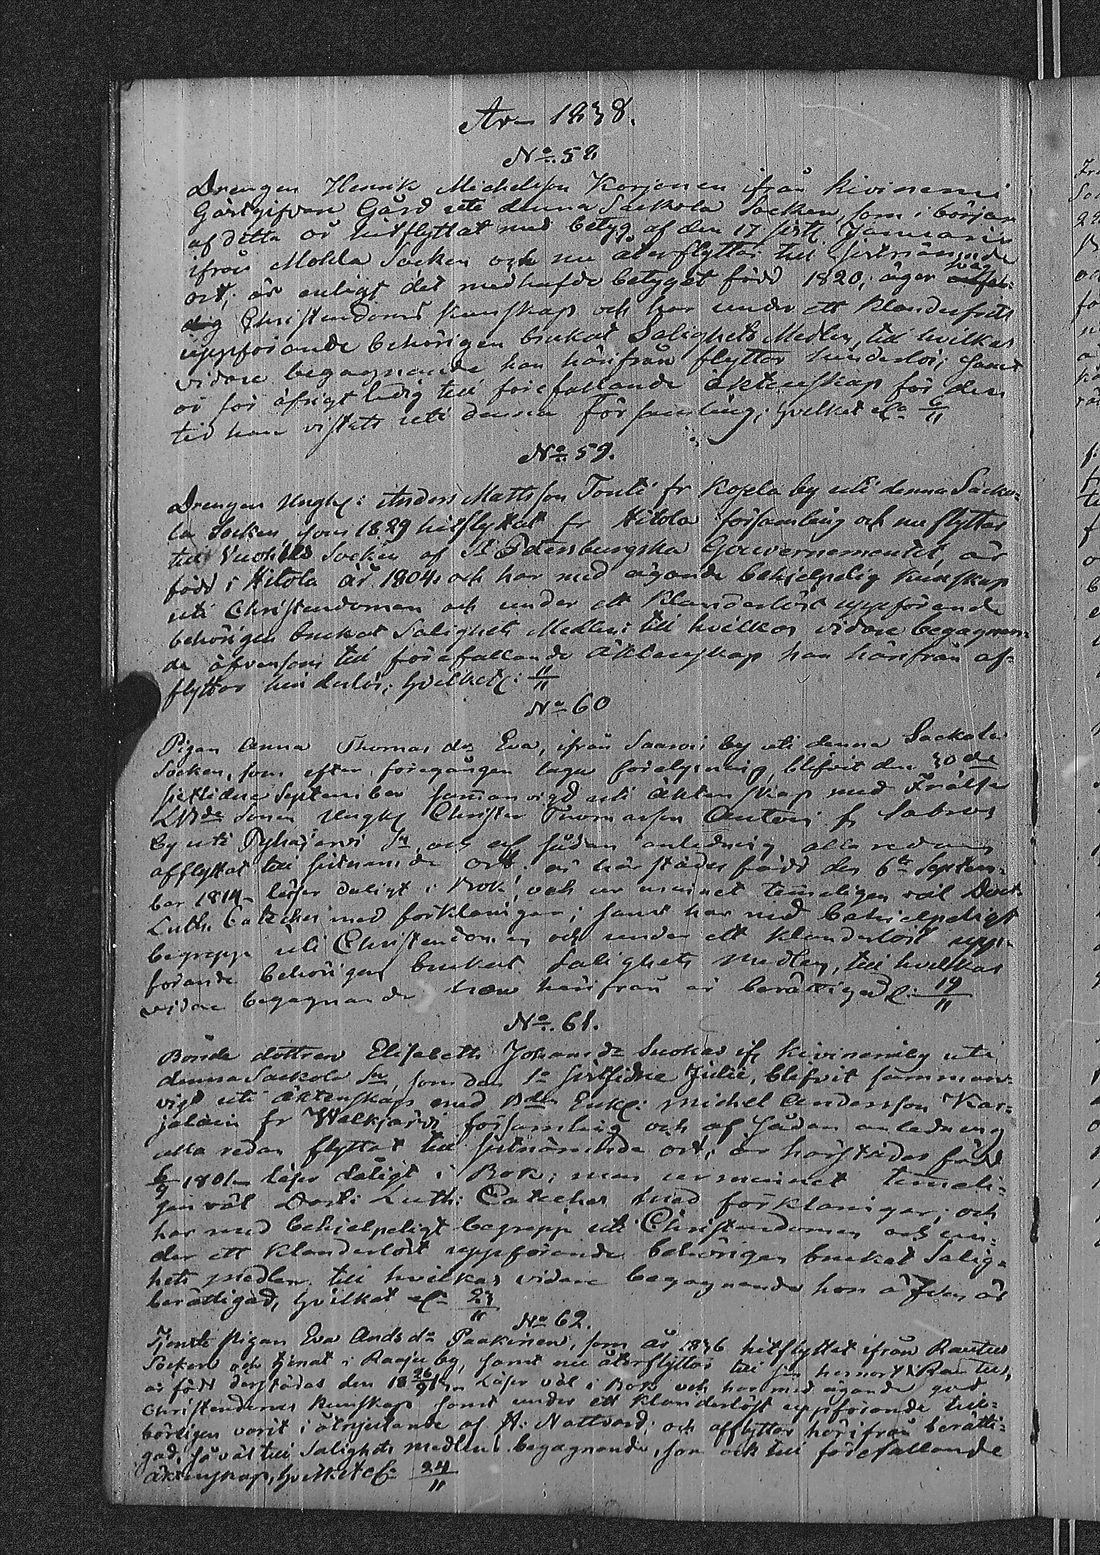 År 1838.
No. 58
Drengen Henrik Michelsson Korjonen ifrån Kivinemi
Gästgifvare Gård uti denna Sackola Socken, som i början
af detta år hitflyttat med betyg af den 17 sistl. Januarii
ifrån Mohla Socken och nu återflyttar till sistnämnde
ort, är enligt det medhafde betyget född 1820, äger
Christendoms kunskap och har under ett klanderfritt
uppförande behörigen brukat Salighets Medlen, till hvilkas
vidare begagnande han härifrån flyttar hinderlös; samt
är för öfrigt ledig till förefallande äktenskap för den
tid han vistats uti denna Församling; hvilket &c 6/11
No. 59.
Drengen Ungk: Anders Mattsson Tonti fr Kopla by uti denna Sacko-
la Socken som 1829 hitflyttat fr Hitola församling och nu flyttar
till Socken af St Petersburgska Gouvernementet, är
född i Hitola år 1804 och har med ägande behjelpelig kunskap
uti Christendomen och under ett klanderlöst uppförande
behörigen brukat Salighets Medlen: till hvilkas vidare begagnan-
de äfvensom till förefallande äktenskap han härifrån af-
flyttar hinderlös; hvilket &c: 11/11
No 60
Pigan Anna Thomas dr Eva, ifrån Saaroi by uti denna Sackola
Socken, som efter föregången laga förelysning, blefvit den 30de
sistlidne September sammanvigd uti äktenskap med Frälse
sonen Ungk: Christer Thomasson Antoni fr
by uti Pyhäjärvi Sn, och af sådan anledning allaredan
afflyttat till sistnämnde ort, är härstädes född den 6te Septem-
ber 1814, läser dåligt i Bok, och ur minnet temmeligen väl Doct
Luth. Catches med förklaringar; samt har med behjelpeligt
begrepp uti Christendomen och under ett klanderlöst upp-
förande behörigen brukat Salighets medlen, till hvilkas
vidare begagnande hon härifrån är berättigad &c: 19/11
No. 61.
Bonde dottren Elisabeth Johans dr Suokas ifr Kivinemi by uti
denna Sackola Sn, som den 1e sistlidne Julii, blefvit samman-
vigd uti äktenskap med Enkl: Michel Andersson Kar-
jalain fr Walkjärvi församling och af sådan anledning
alla redan flyttat till sistnämnde ort, är härstädes född
1801, läser dåligt i Bok; men ur minnet temmeli-
gen väl Doct: Luth: Catechés med förklaringar; och
har med behjelpeligt begrepp uti Christendomen och un-
der ett klanderlöst uppförande behörigen brukat Salig-
hets medlen till hvilkas vidare begagnande hon är
berättigad, hvilket &c 23/11
No 62.
Tjenste Pigan Eva Ands dr Paakinen, som år 1836 hitflyttat ifrån Rautus
Socken och tjenat i Raaju by, samt nu återflyttar till sin hemort Rautus,
är född derstädes den 18 26/9 Läser väl i Bok och har med ägande god
Christendoms kunskap samt under ett klanderlöst uppförande till-
börligen varit i åtnjutande af H. Nattvard; och afflyttar härifrån berätti-
gad, så väl till Salighets medlens begagnande, som ock till förefallande
äktenskap, hvilket &c 24/11